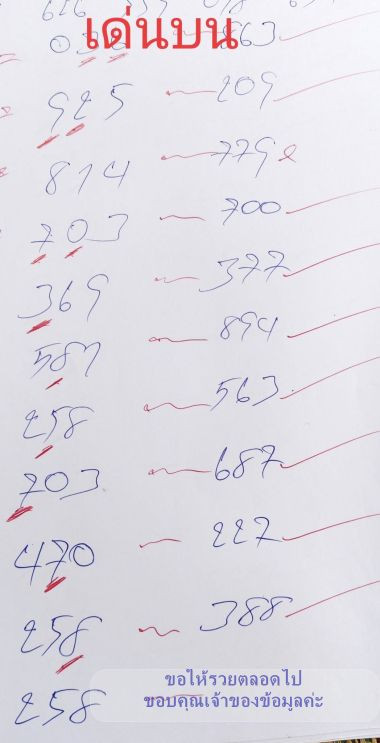 เด่นบน
925 209
814 779
703 700
369 377
587 894
258 563
703 687
470 227
258 388
258
ขอให้รวยตลอดไป
ขอบคุณเจ้าของข้อมูลค่ะ